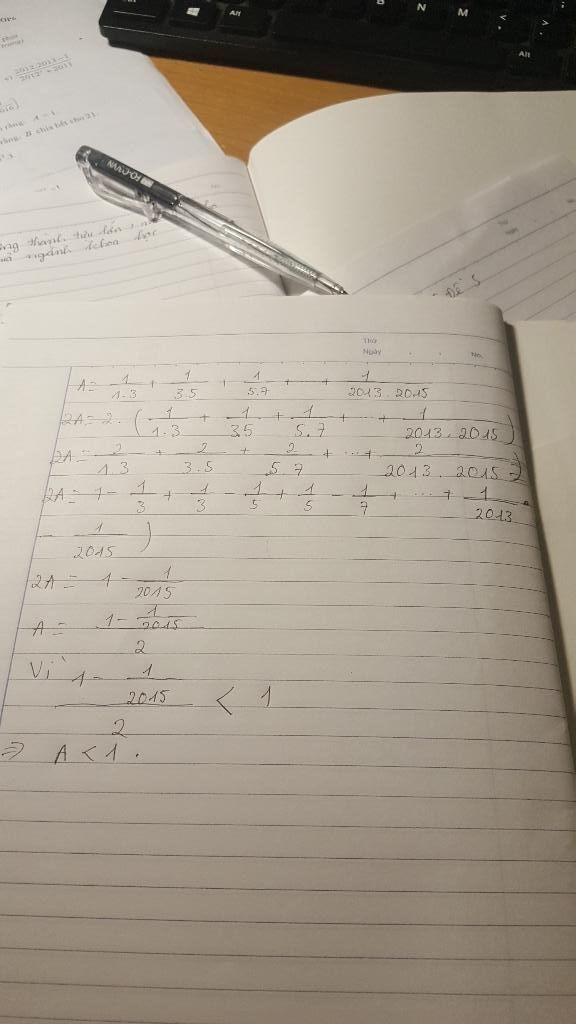 Alt
N
M
Alt
2012.2013-1
2012² + 2011
A = 1.
B chia hết cho 21.
FO-GVN
ngành khoa học
ĐỀ 5
Thứ
Ngày
No.
A = 1/1.3 + 1/3.5 + 1/5.7 + ... + 1/2013.2015
2A = 2.(1/1.3 + 1/3.5 + 1/5.7 + ... + 1/2013.2015)
2A = 2/1.3 + 2/3.5 + 2/5.7 + ... + 2/2013.2015)
2A = 1 - 1/3 + 1/3 - 1/5 + 1/5 - 1/7 + ... + 1/2013
- 1/2015)
2A = 1 - 1/2015
A = (1 - 1/2015)/2
Vì (1 - 1/2015)/2 < 1
=> A < 1.